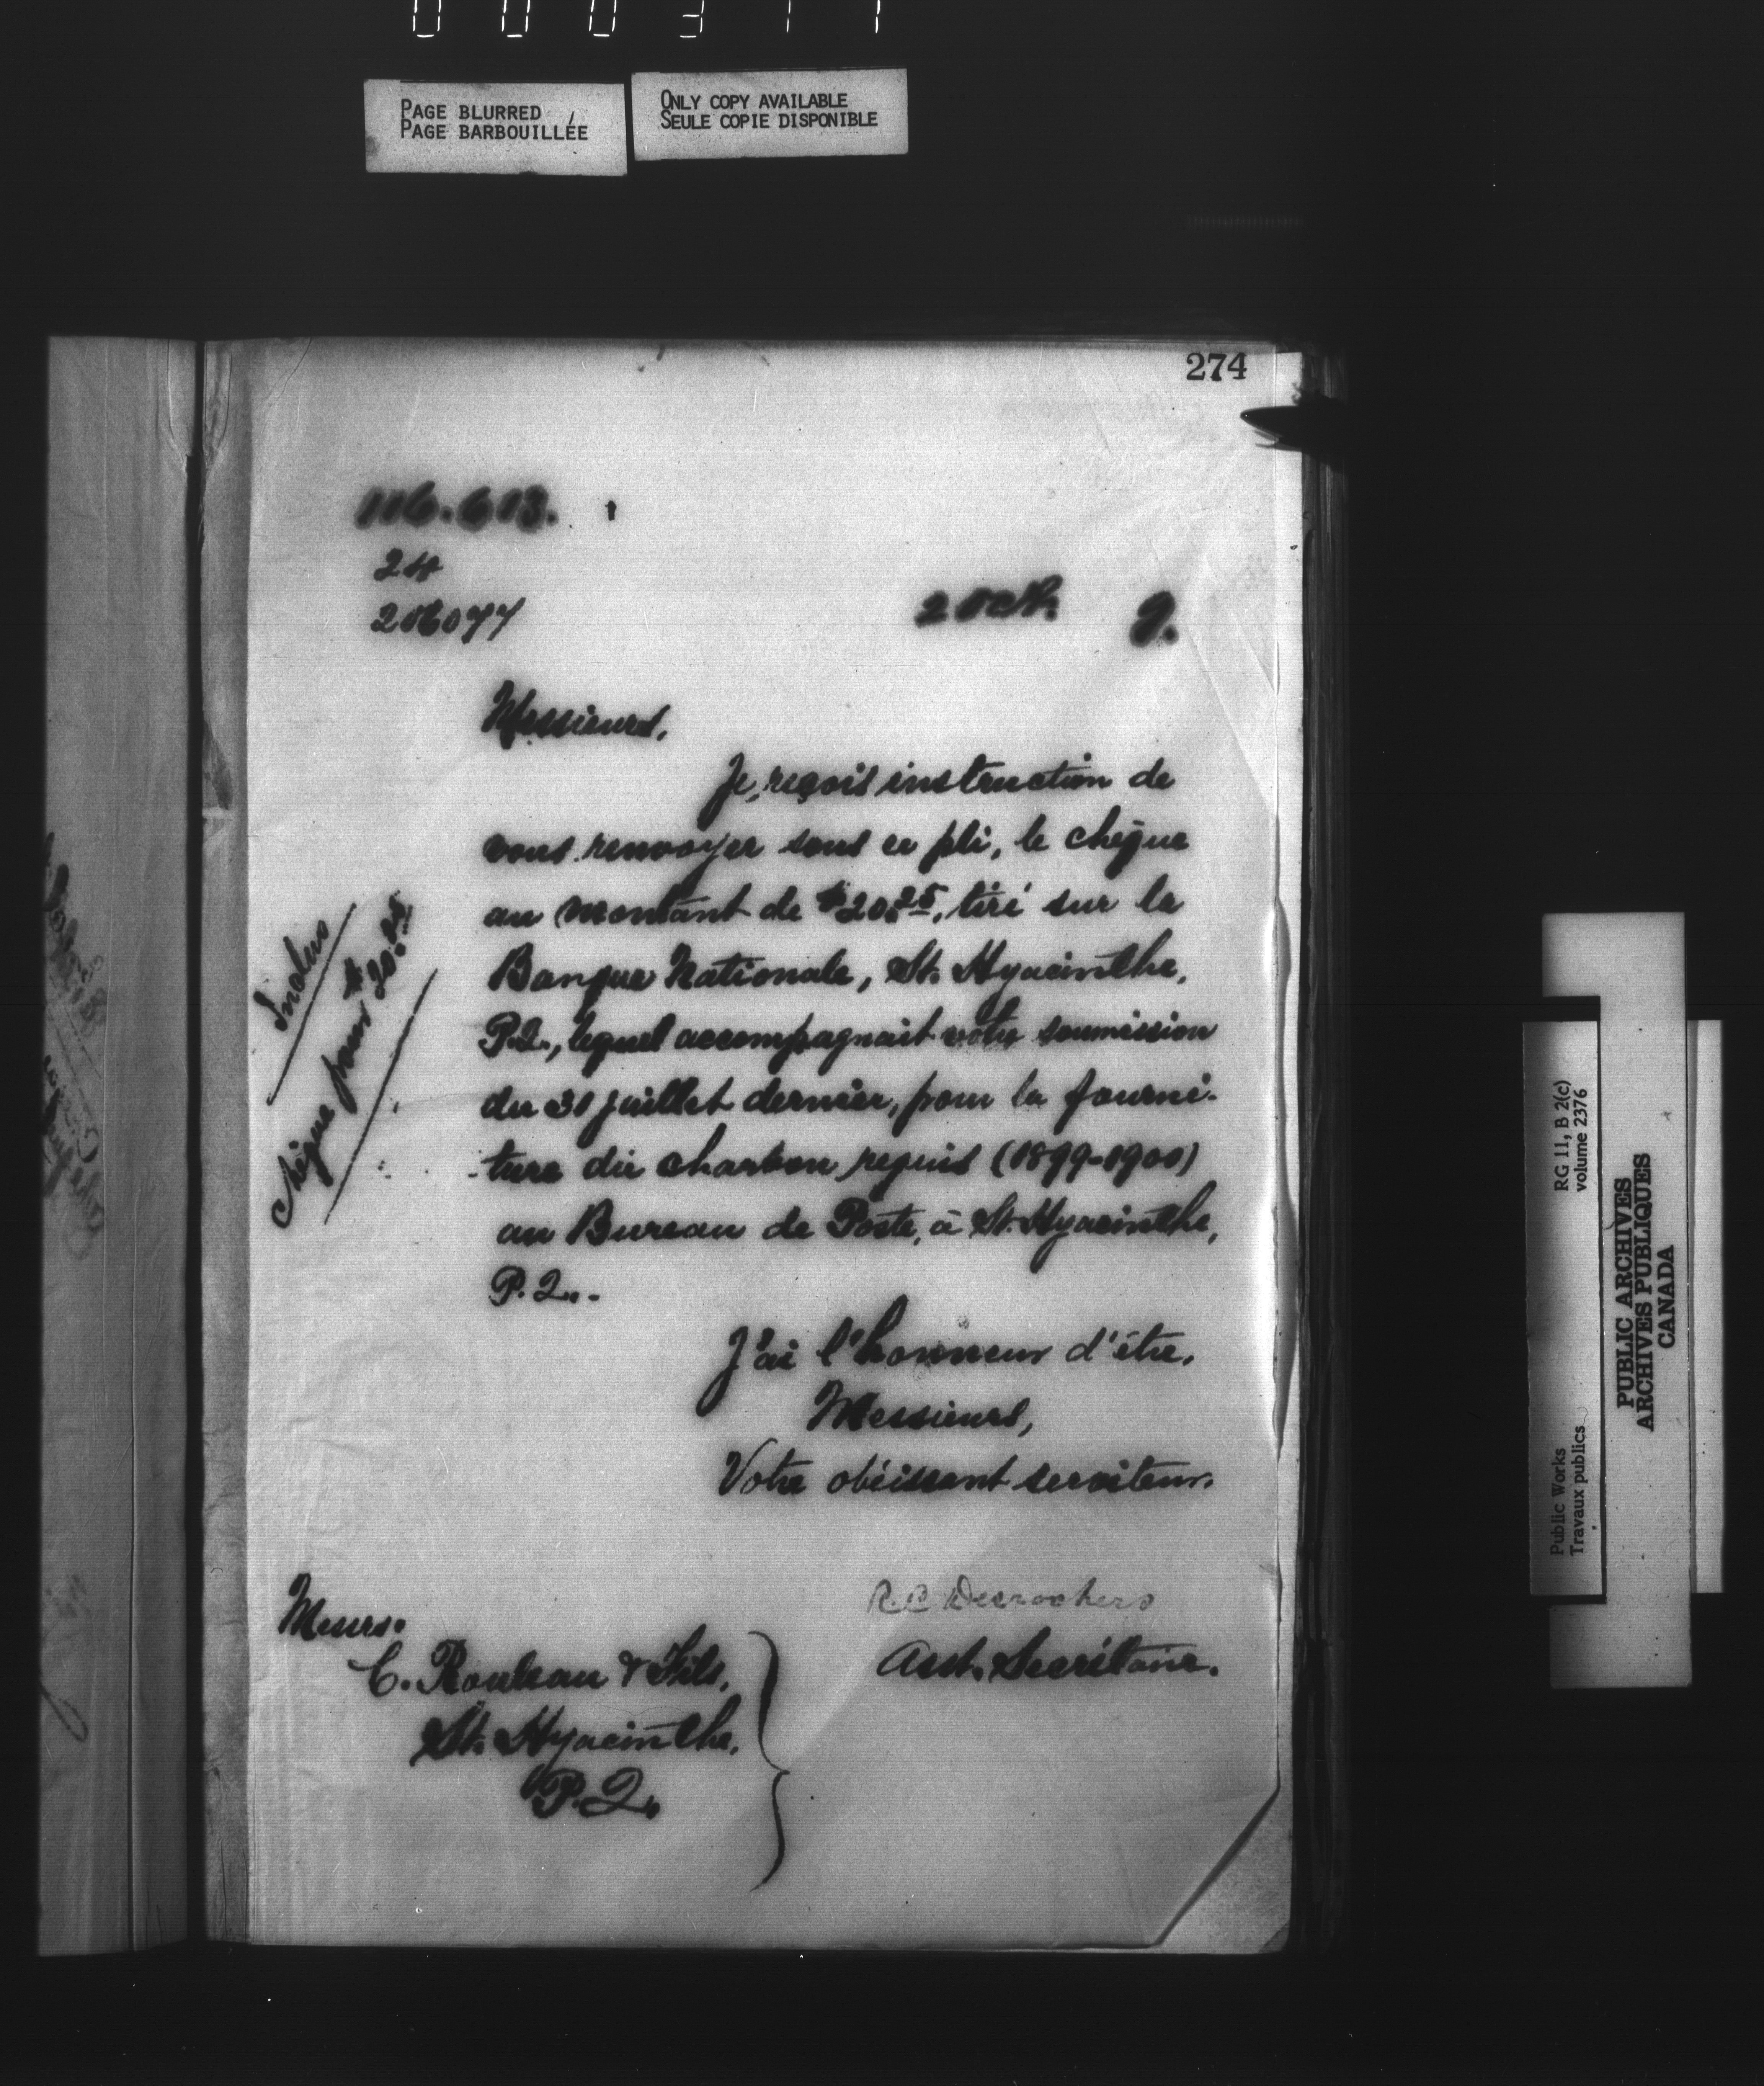 PAGE BLURRED
PAGE BARBOUILLÉE
ONLY COPY AVAILABLE
SEULE COPIE DISPONIBLE
274
24
206077
2 Oct. 9.
Messieurs,
Je reçois instruction de
vous renvoyer sous ce pli, le chèque
au montant de $20.25, tiré sur la
Banque Nationale, St. Hyacinthe,
P.Q., lequel accompagnait votre soumission
du 31 juillet dernier, pour la fourni-
ture du charbon requis (1899-1900)
au Bureau de Poste, à St. Hyacinthe,
P.Q..-
J'ai l'honneur d'être,
Messieurs,
Votre obéissant serviteur.
R.C. Desrochers
Asst. Secrétaire.
Messrs.
C. Rouleau & Fils,
St. Hyacinthe,
P.Q.
Inclus
Chèque pour $20.25
RG 11, B 2(c)
volume 2376
Public Works
Travaux publics
PUBLIC ARCHIVES
ARCHIVES PUBLIQUES
CANADA